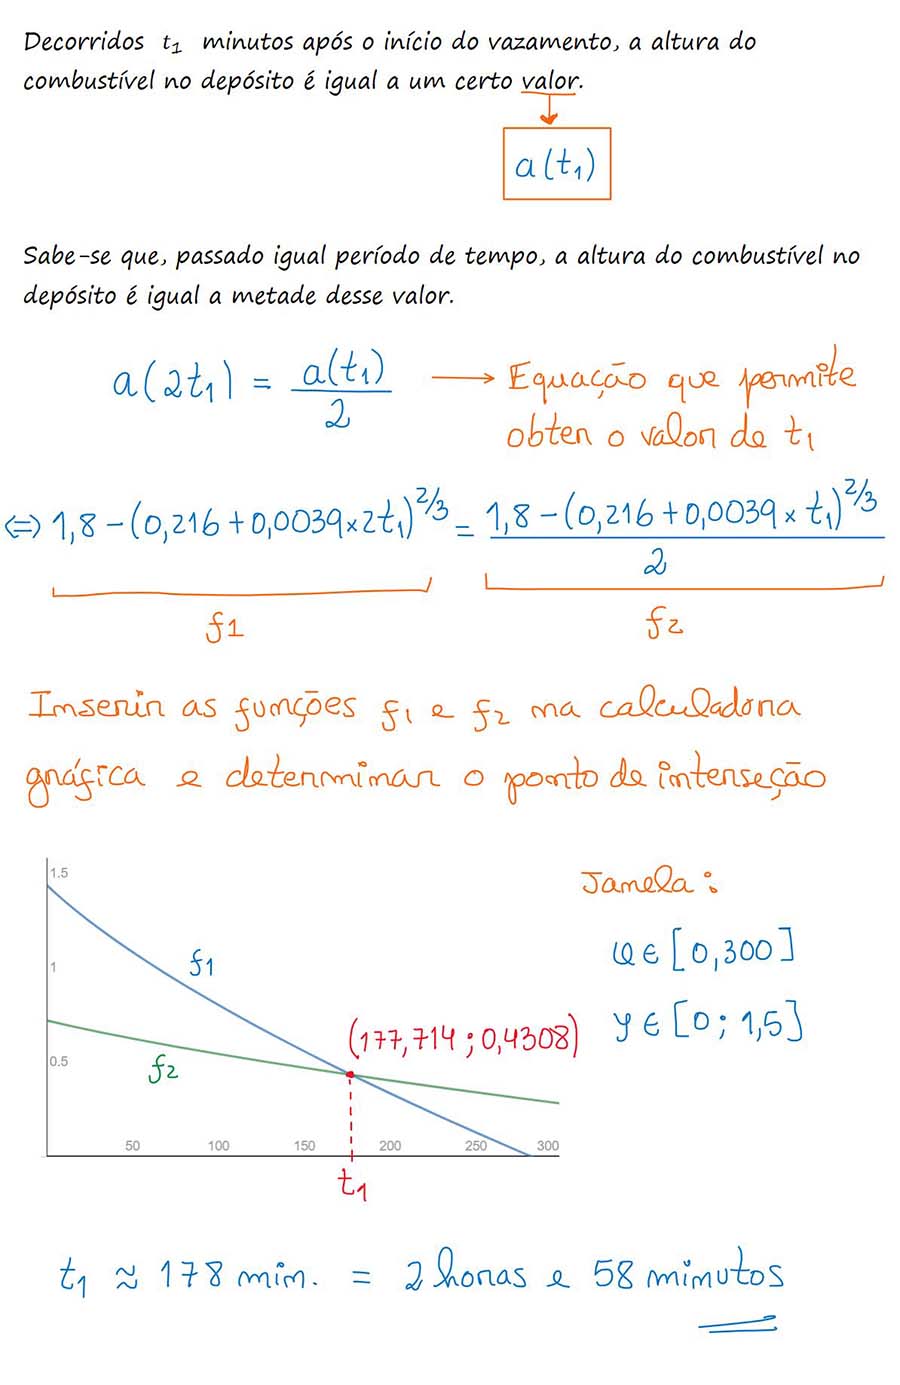 Decorridos t₁ minutos após o início do vazamento, a altura do
combustível no depósito é igual a um certo valor.
a(t₁)
Sabe-se que, passado igual período de tempo, a altura do combustível no
depósito é igual a metade desse valor.
a(2t₁) = a(t₁)/2 → Equação que permite
obter o valor de t₁
⇔ 1,8-(0,216+0,0039×2t₁)^2/3 = 1,8-(0,216+0,0039×t₁)^2/3 / 2
f1 f2
Inserir as funções f1 e f2 na calculadora
gráfica e determinar o ponto de interseção
1.5
1
0.5
f1
f2
(177,714 ; 0,4308)
50 100 150 200 250 300
t₁
Janela:
x ∈ [0,300]
y ∈ [0 ; 1,5]
t₁ ≈ 178 min. = 2 horas e 58 minutos